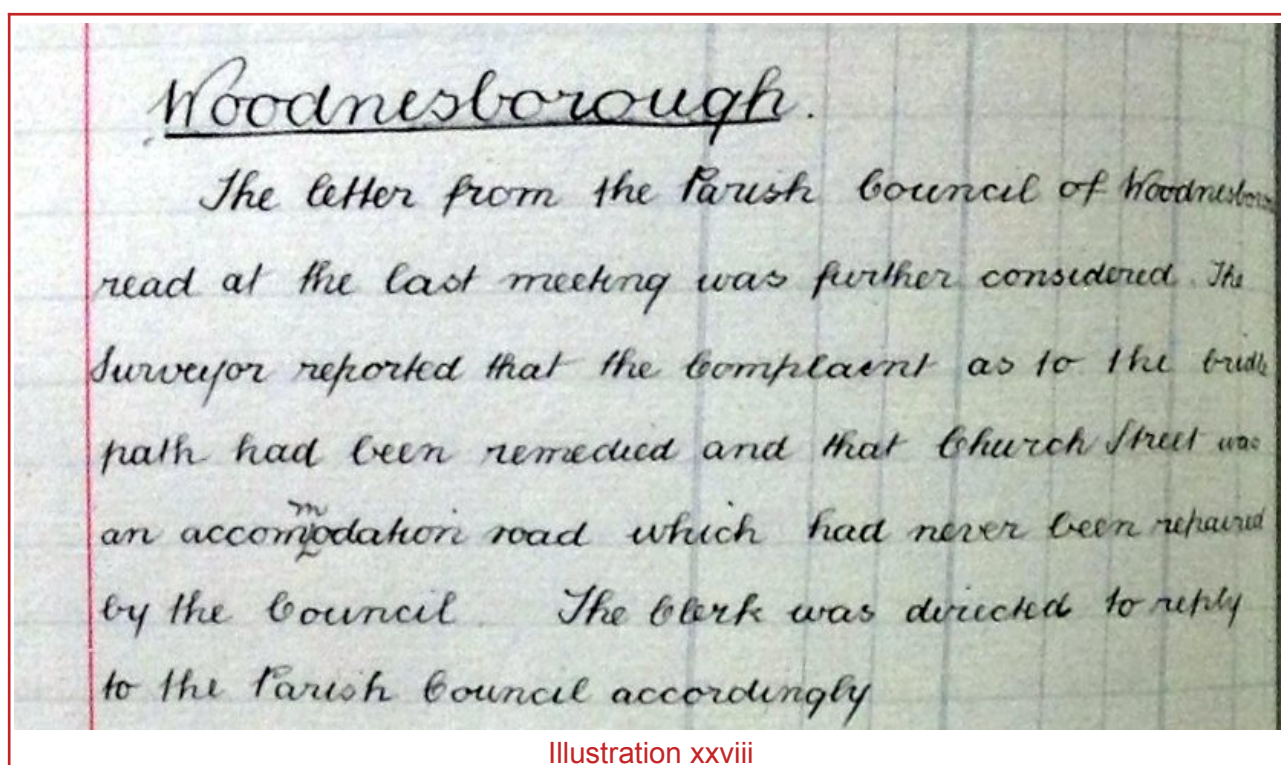 Woodnesborough.
The letter from the Parish Council of Woodnesboro
read at the last meeting was further considered. The
Surveyor reported that the Complaint as to the bridle
path had been remedied and that Church Street was
an accommodation road which had never been repaired
by the Council. The Clerk was directed to reply
to the Parish Council accordingly
Illustration xxviii